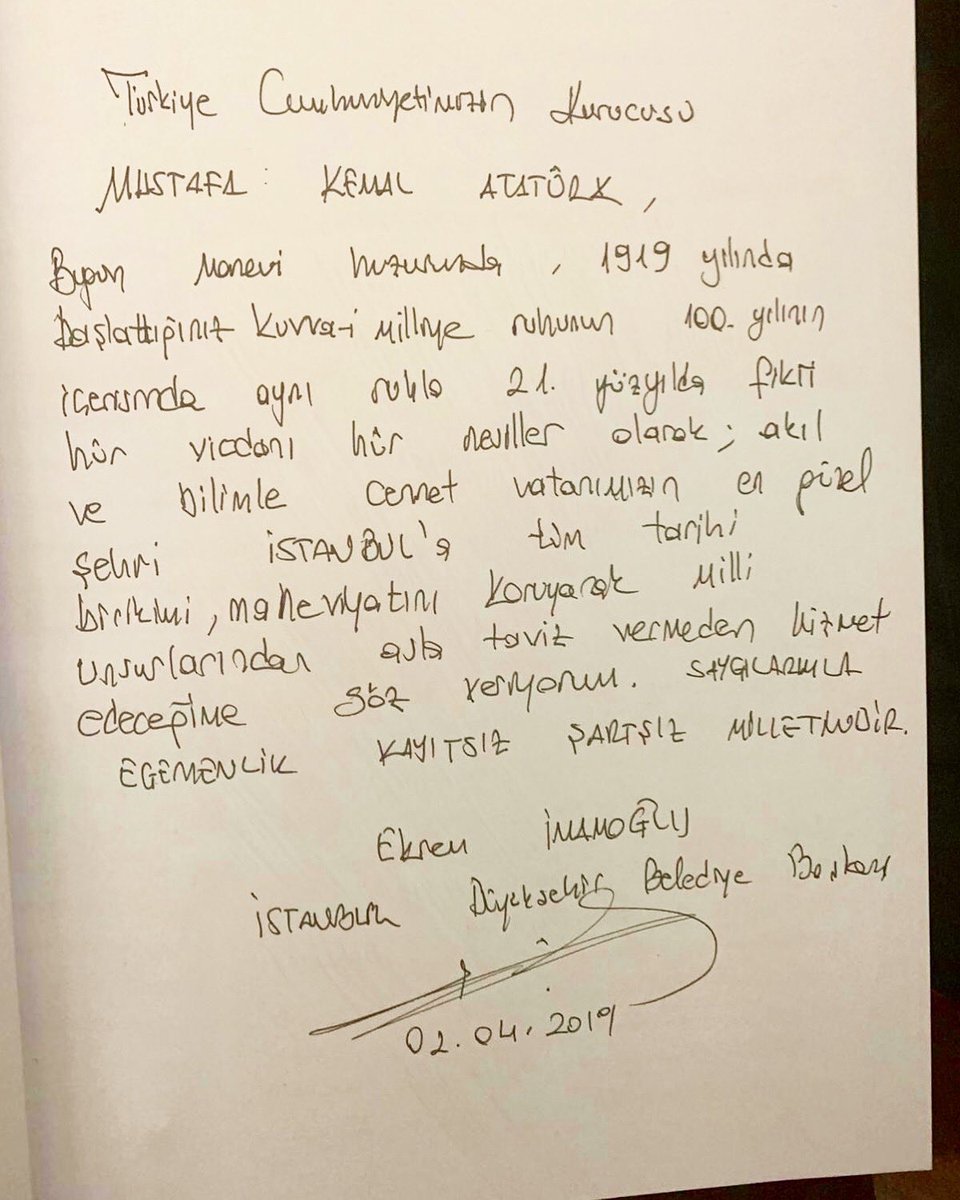 Türkiye Cumhuriyetimizin Kurucusu
MUSTAFA KEMAL ATATÜRK,
Bugün Manevi huzurunuzda, 1919 yılında
başlattığınız Kuvva-i Milliye ruhunun 100. yılının
içerisinde aynı ruhla 21. yüzyılda fikri
hür vicdanı hür nesiller olarak; akıl
ve bilimle cennet vatanımızın en güzel
şehri İSTANBUL'a tüm tarihi
birikimi, maneviyatını koruyarak Milli
unsurlarından asla taviz vermeden hizmet
edeceğime söz veriyorum. SAYGILARIMLA
EGEMENLİK KAYITSIZ ŞARTSIZ MİLLETİNDİR.
Ekrem İMAMOĞLU
İSTANBUL Büyükşehir Belediye Başkanı
02.04.2019